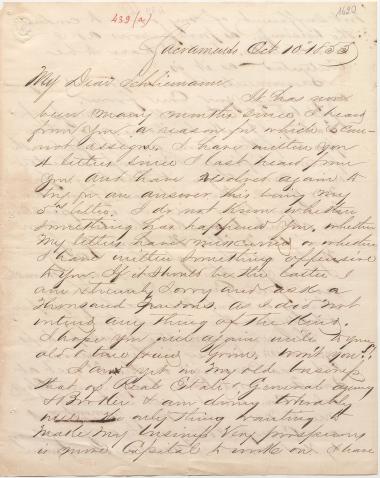 439 (a)
1620
Sacramento Oct 10 1855
My Dear Schliemann
It has now
been many months since I heard
from you a reason for which I can
not assign. I have written you
4 letters since I last heard from
you and have resolved again to
try for an answer this being my
5th letter. I do not know whether
something has happened you, whether
my letters have miscarried or whether
I have written something offensive
to you. If it should be the latter I
am extremely sorry and ask a
thousand pardons as I did not
intend any thing of the kind.
I hope you will again write to your
old & true friend Grim, won't you?
I am yet in my old business
that of Real Estate & General Agency
& Broker & am doing tolerably
well only thing wanting to
make my business very prosperous
is more Capital to work on. I have